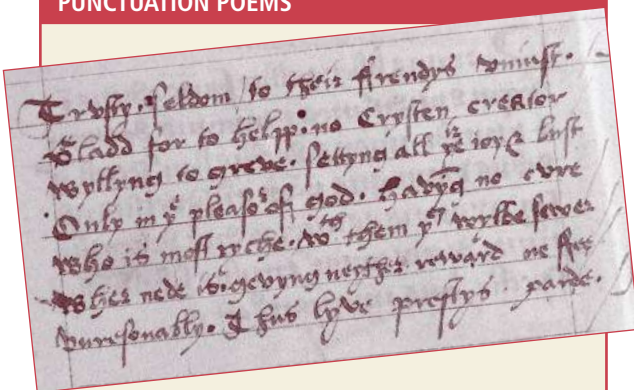 PUNCTUATION POEMS
Trusty. seldom / to their ffrendys vniust.
Gladd for to helpp. no Crysten creator
wyllyng to greve. settyng all þeir ioy & lust
Only in þe pleasor of god. havyng no cvre
who is most ryche. wth them þt wylbe sewer
wher nede is. gevyng neyther reward ne ffee
vnresonably. Thus lyve prestys. parde.